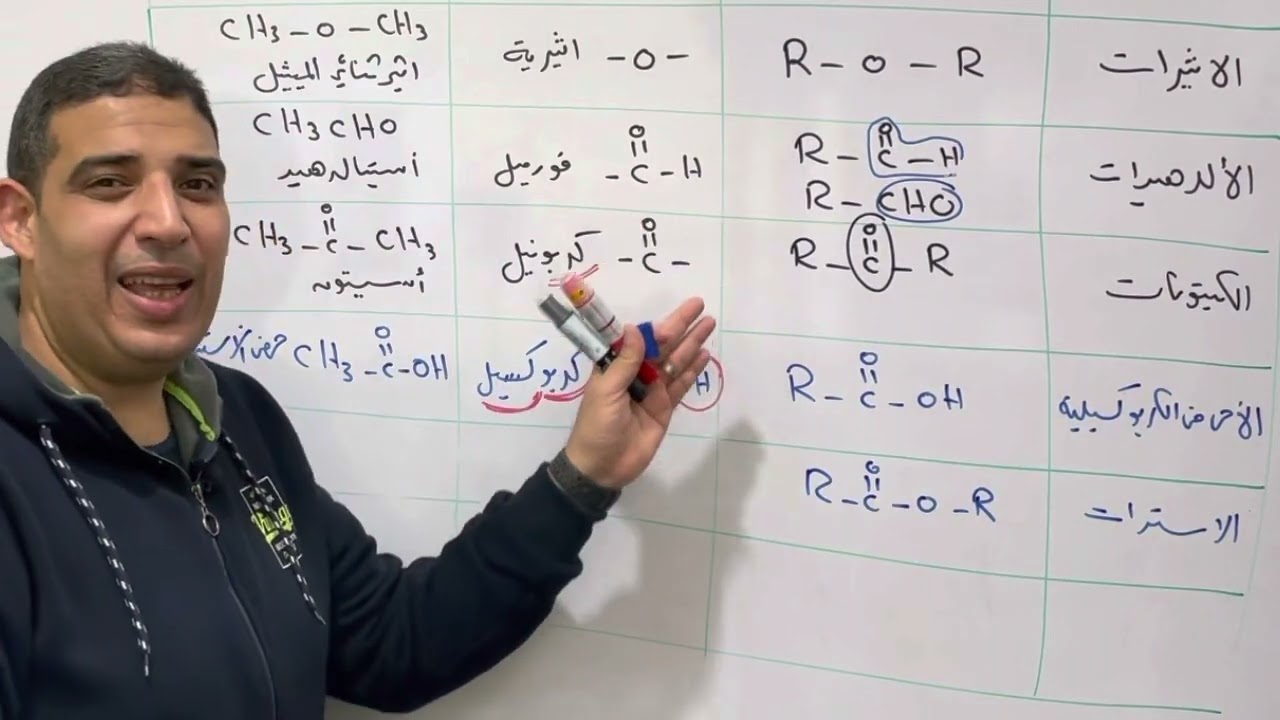 الاثيرات
R - O - R
اثيرية - O -
CH3 - O - CH3
اثير ثنائي الميثيل
الألدهيدات
O
R - C - H
R - CHO
O
فورميل - C - H
CH3CHO
أسيتالدهيد
الكيتونات
O
R - C - R
O
كربونيل - C -
O
CH3 - C - CH3
أسيتون
الأحماض الكربوكسيلية
O
R - C - OH
كربوكسيل H
O
CH3 - C - OH حمض
الاسترات
O
R - C - O - R